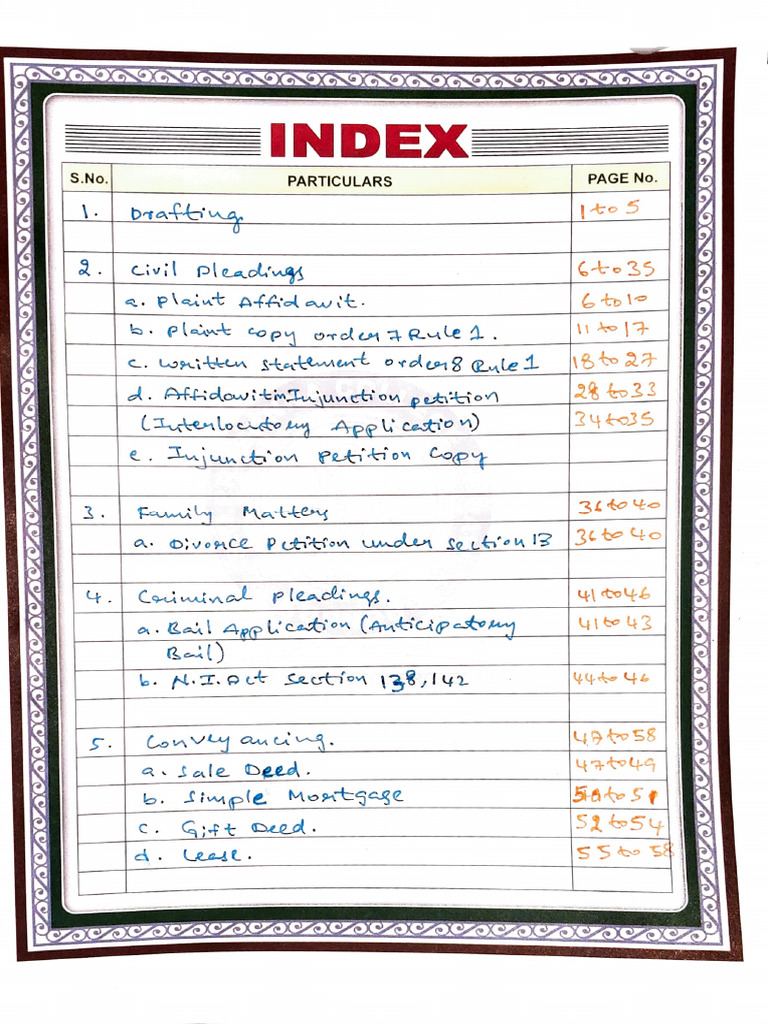 INDEX
S.No. PARTICULARS PAGE No.
1. Drafting 1 to 5
2. Civil Pleadings 6 to 35
a. Plaint Affidavit. 6 to 10
b. Plaint copy order 7 Rule 1. 11 to 17
c. Written statement order 8 Rule 1 18 to 27
d. Affidavit in Injunction petition 28 to 33
(Interlocutory Application) 34 to 35
e. Injunction Petition Copy
3. Family Matters 36 to 40
a. Divorce Petition under section 13 36 to 40
4. Criminal Pleadings. 41 to 46
a. Bail Application (Anticipatory 41 to 43
Bail)
b. N.I. Act section 138, 142 44 to 46
5. Conveyancing. 47 to 58
a. Sale Deed. 47 to 49
b. Simple Mortgage 50 to 51
c. Gift Deed. 52 to 54
d. Lease. 55 to 58